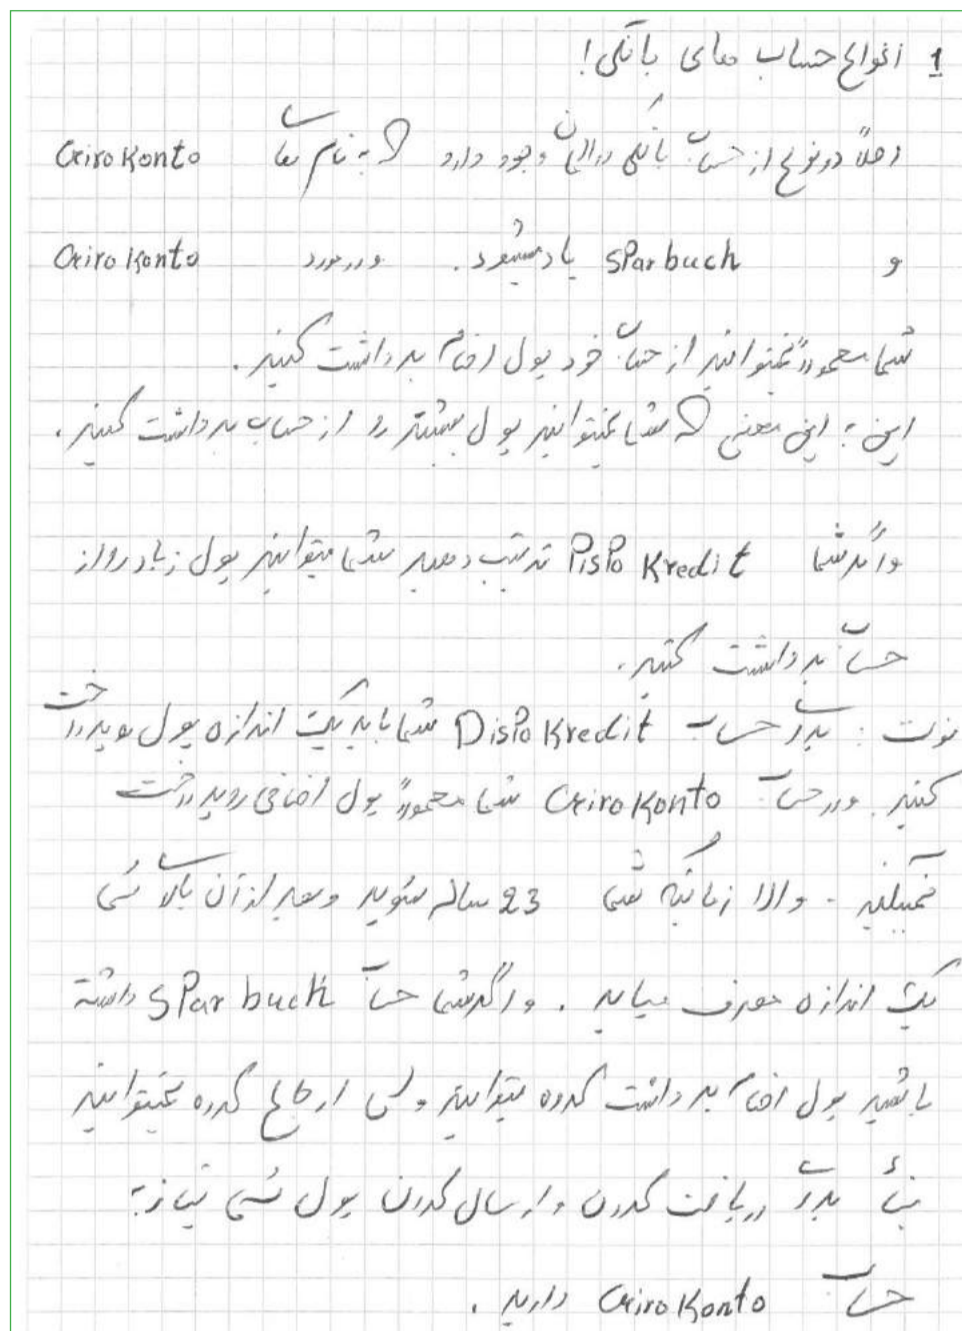 1 انواع حساب های بانکی!
اصلاً دو نوع از حساب بانکی در المان وجود دارد که به نام های Giro Konto
و SPar buch یاد میشود. و در مورد Giro Konto
شما معمولاً نمیتوانید از حساب خود پول اضافی برداشت کنید.
این به این معنی که شما نمیتوانید پول بیشتر رو از حساب برداشت کنید.
و اگر شما DisPo Kredit ترتیب دهید شما میتوانید پول زیاد رو از
حساب برداشت کنید.
نوت: برای حساب DisPo Kredit شما باید یک اندازه پول پرداخت
کنید. و در حساب Giro Konto شما معمولاً پول اضافی رو پرداخت
نمیکنید. و الا زمانیکه شما 23 ساله شوید و بعد از آن بالای شما
یک اندازه مصرف میاید. و اگر شما حساب SPar buch داشته
باشید پول اضافی برداشت کرده میتوانید ولی ارجاع کرده نمیتوانید
بناً برای دریافت کردن و ارسال کردن پول شما نیاز به
حساب Giro Konto دارید.